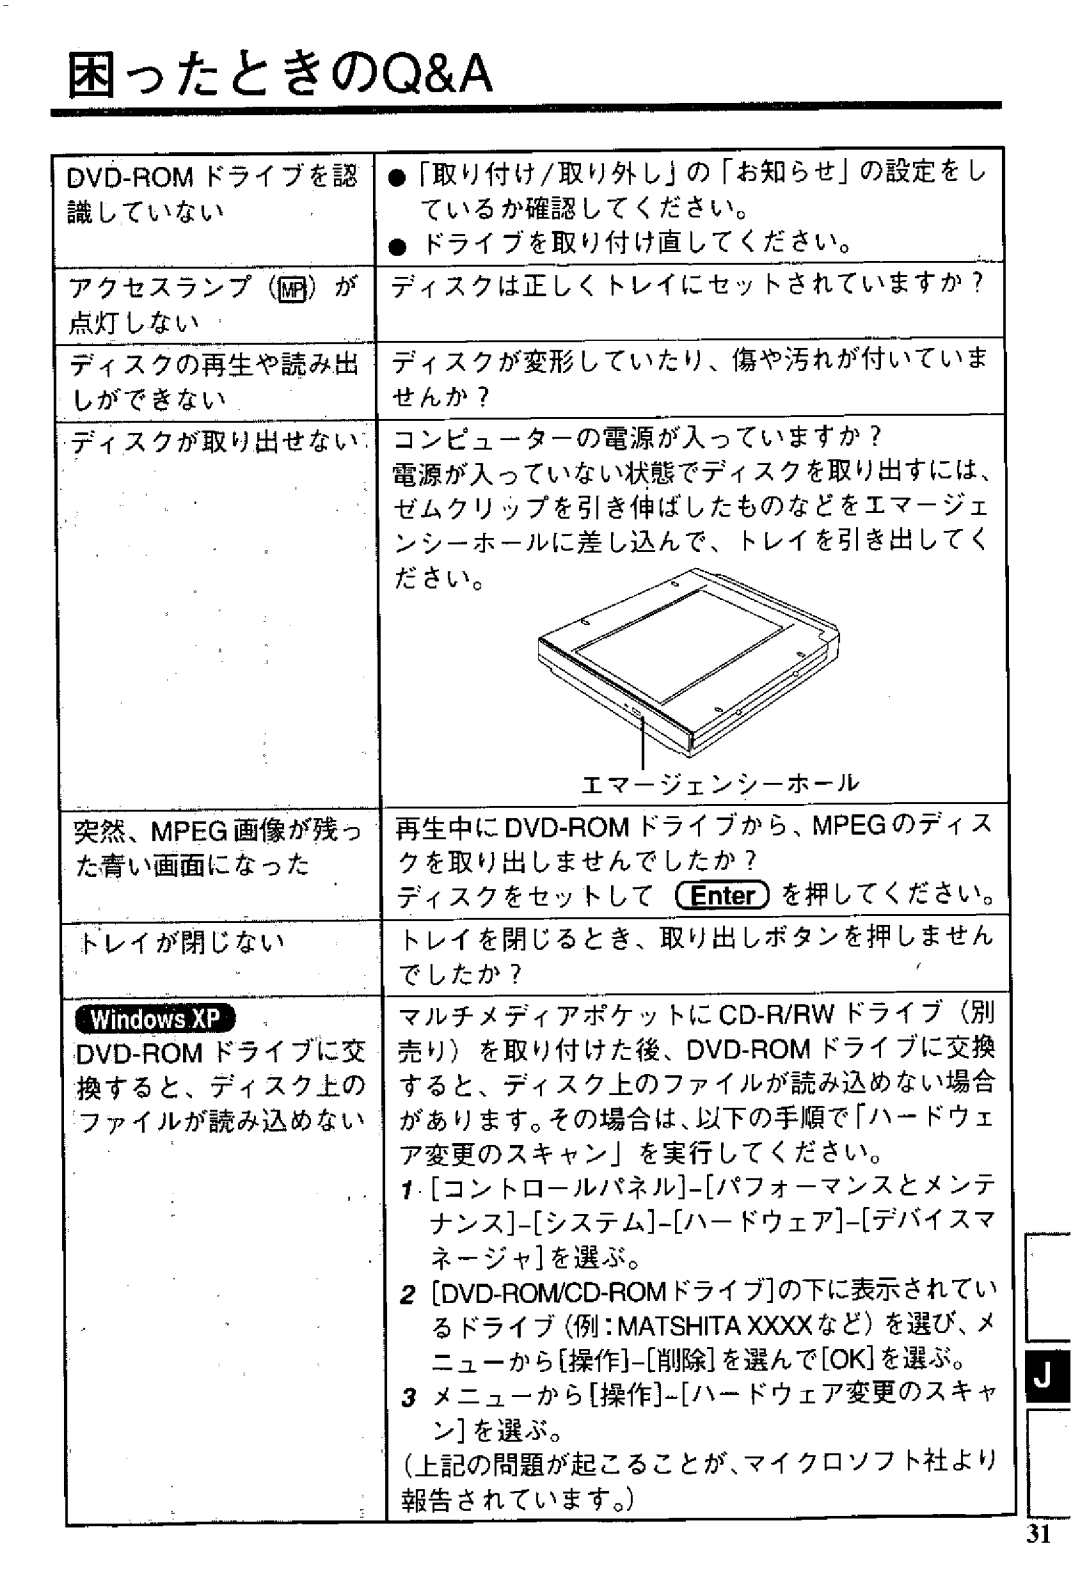 困ったときのQ&A
DVD-ROM ドライブを認
識していない
●「取り付け/取り外し」の「お知らせ」の設定をし
ているか確認してください。
● ドライブを取り付け直してください。
アクセスランプ (MP) が
点灯しない
ディスクは正しくトレイにセットされていますか?
ディスクの再生や読み出
しができない
ディスクが変形していたり、傷や汚れが付いていま
せんか?
ディスクが取り出せない
コンピューターの電源が入っていますか?
電源が入っていない状態でディスクを取り出すには、
ゼムクリップを引き伸ばしたものなどをエマージェ
ンシーホールに差し込んで、トレイを引き出してく
ださい。
エマージェンシーホール
突然、MPEG 画像が残っ
た青い画面になった
再生中に DVD-ROM ドライブから、MPEG のディス
クを取り出しませんでしたか?
ディスクをセットして Enter を押してください。
トレイが閉じない
トレイを閉じるとき、取り出しボタンを押しません
でしたか?
Windows XP
DVD-ROM ドライブに交
換すると、ディスク上の
ファイルが読み込めない
マルチメディアポケットに CD-R/RW ドライブ(別
売り)を取り付けた後、DVD-ROM ドライブに交換
すると、ディスク上のファイルが読み込めない場合
があります。その場合は、以下の手順で「ハードウェ
ア変更のスキャン」を実行してください。
1 [コントロールパネル]-[パフォーマンスとメンテ
ナンス]-[システム]-[ハードウェア]-[デバイスマ
ネージャ]を選ぶ。
2 [DVD-ROM/CD-ROMドライブ]の下に表示されてい
るドライブ(例:MATSHITA XXXXなど)を選び、メ
ニューから[操作]-[削除]を選んで[OK]を選ぶ。
3 メニューから[操作]-[ハードウェア変更のスキャ
ン]を選ぶ。
(上記の問題が起こることが、マイクロソフト社より
報告されています。)
J
31